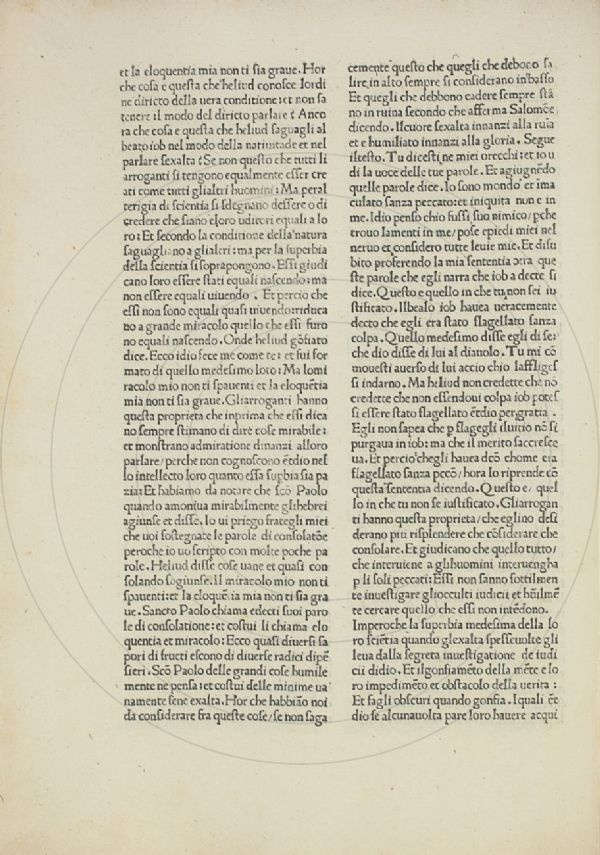 et la eloquentia mia non ti sia graue. Hor
che cosa e questa che heliud conosce lordi
ne diricto della uera conditione: et non sa
tenere il modo del diricto parlare? Anco
ra che cosa e questa che heliud saguagli al
beato iob nel modo della natiuitade et nel
parlare sexalta? Se non questo che tutti li
arroganti si tengono equalmente esser cre
ati come tutti glialtri huomini: Ma per al
terigia di scientia si sdegnano dessere o di
credere che siano cloro uditori equali a lo
ro: Et secondo la conditione della natura
saguagliano a glialtri: ma per la superbia
della scientia si soprapongono. Essi giudi
cano loro essere stati equali nascendo: ma
non essere equali uiuendo. Et percio che
essi non sono equali quasi uiuendo: riduca
no a grande miracolo quello che essi furo
no equali nascendo. Onde heliud gōfiato
dice. Ecco idio fece me come te: et fui for
mato di quello medesimo loto: Ma lo mi
racolo mio non ti spauenti et la eloquētia
mia non ti sia graue. Gliarroganti hanno
questa proprieta che inprima che essi dica
no sempre stimano di dire cose mirabile:
et monstrano admiratione dinanzi alloro
parlare/perche non cognoscono ētdio nel
lo intellecto loro quanto essa supbia sia pa
zia: Et habiamo da notare che scō Paolo
quando amoniua mirabilmente glihebrei
agiunse et disse. Io ui priego frategli miei
che uoi sostegnate le parole di consolatōe
peroche io uo scripto con molte poche pa
role. Heliud disse cose uane et quasi con
solando sogiunse. Il miracolo mio non ti
spauenti: et la eloquētia mia non ti sia gra
ue. Sancto Paolo chiama edecti suoi paro
le di consolatione: et costui li chiama elo
quentia et miracolo: Ecco quasi diuersi sa
pori di fructi escono di diuerse radici di pē
sieri. Scō Paolo delle grandi cose humile
mente ne pensa: et costui delle minime ua
namente sene exalta. Hor che habbiāo noi
da considerare fra queste cose/se non saga
cemente questo che quegli che debono sa
lire in alto sempre si considerano in basso
Et quegli che debbono cadere sempre stā
no in ruina secondo che afferma Salomōe
dicendo. Il cuore sexalta innanzi alla ruia
et e humiliato innanzi alla gloria. Segue
il testo. Tu dicesti ne miei orecchi: et io u
di la uoce delle tue parole. Et agiugnēdo
quelle parole dice. Io sono mondo et ima
culato sanza peccato: et iniquita non e in
me. Idio penso chio fussi suo nimico/pche
trouo lamenti in me/pose epiedi miei nel
neruo et considero tutte leuie mie. Et di su
bito proferendo la mia sententia cōtra que
ste parole che egli narra che iob a decte si
dice. Questo e quello in che tu non sei iu
stificato. Il beato iob hauea ueracemente
decto che egli era stato flagellato sanza
colpa. Quello medesimo disse egli di se:
che dio disse di lui al diauolo. Tu mi cō
mouesti auerso di lui accio chio lafflige
si indarno. Ma heliud non credette che nō
credette che non essendoui colpa iob potes
si essere stato flagellato ētdio per gratia.
Egli non sapea che p flagegli il uitio nō si
purgaua in iob: ma che il merito saccresce
ua. Et percio chegli hauea decō chome era
flagellato sanza pccō/hora lo riprende cō
questa sententia dicendo. Questo e quel
lo in che tu non se iustificato. Gliarrogan
ti hanno questa proprieta/che eglino desi
derano piu risplendere che cōsiderare che
consolare. Et giudicano che quello tutto/
che interuiene a glihuomini interuengha
p li soli peccati: Essi non sanno sottilmen
te inuestigare gliocculti iudicii et hūilmē
te cercare quello che essi non intēdono.
Imperoche la superbia medesima della lo
ro sciētia quando glexalta spesseuolte gli
leua dalla segreta inuestigatione de iudi
cii didio. Et il gonfiamēto della mēte e lo
ro impedimēto et obstacolo della uerita:
Et fagli obscuri quando gonfia. I quali et
dio se alcunauolta pare loro hauere acqui